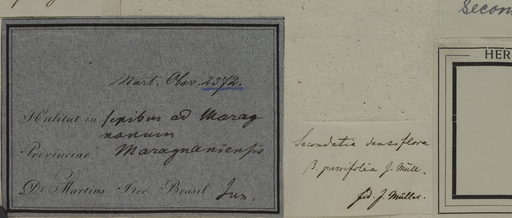 Secon
HER
Mart. Obsv. 2372.
Habitat in sepibus ad Marag
nanum
Provinciae Maragnaniensis
Dr. Martius Iter Brasil Jun.
Secondatia densiflora
β. parvifolia J. Müll.
fid. J. Müller.